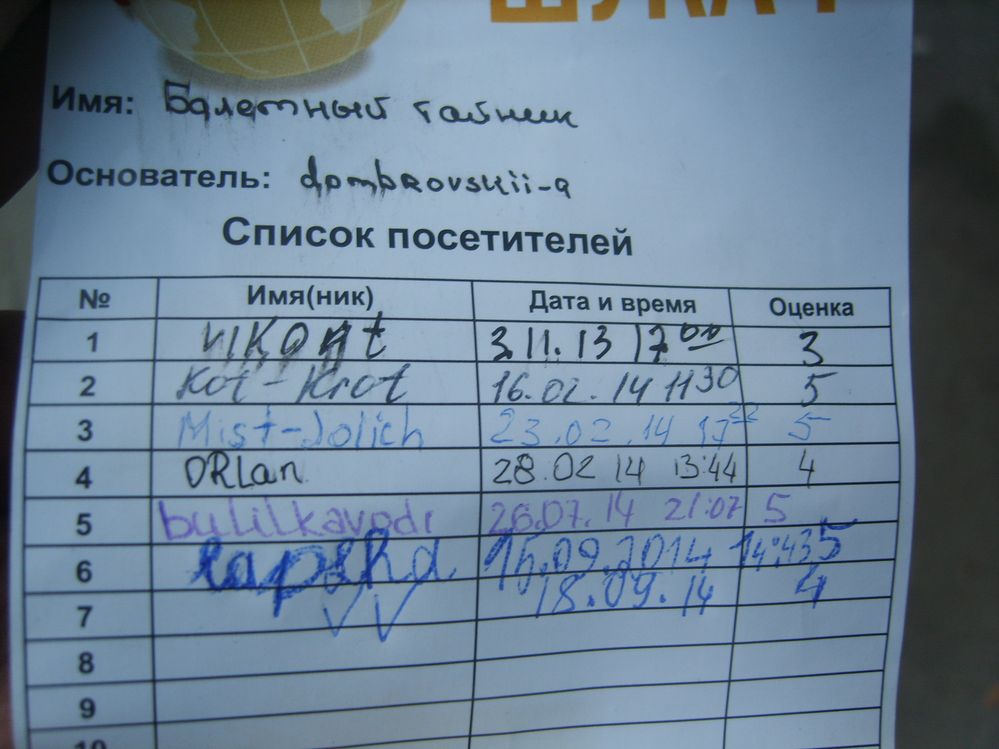 Имя: Балетный тайник
Основатель: dombrovskii-a
Список посетителей
№ Имя(ник) Дата и время Оценка
1 3.11.13 17 00 3
2 Kot-Krot 16.02.14 11 30 5
3 Mist-Jolich 23.02.14 17 22 5
4 ORLan 28.02 14 13:44 4
5 bulilkavodi 26.07.14 21:07 5
6 lapsha 15.09.2014 14:43 5
7 VV 18.09.14 4
8
9
10